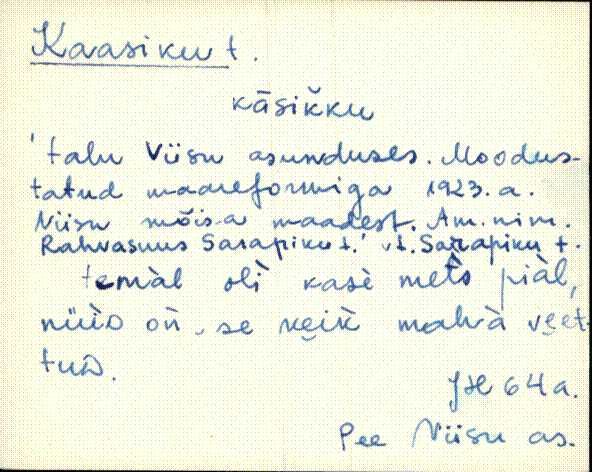 Kaasiku t.
kāsikku
'talu Viisu asunduses. Moodus-
tatud maareformiga 1923. a.
Viisu mõisa maadest. Am. nim.
Rahvasuus Sarapiku t.' vt. Sarapiku t.
temàl olì kasè mets piàl,
nüiD oǹ, se keik mahà veet-
tuD.
JH 64 a.
Pee Viisu as.